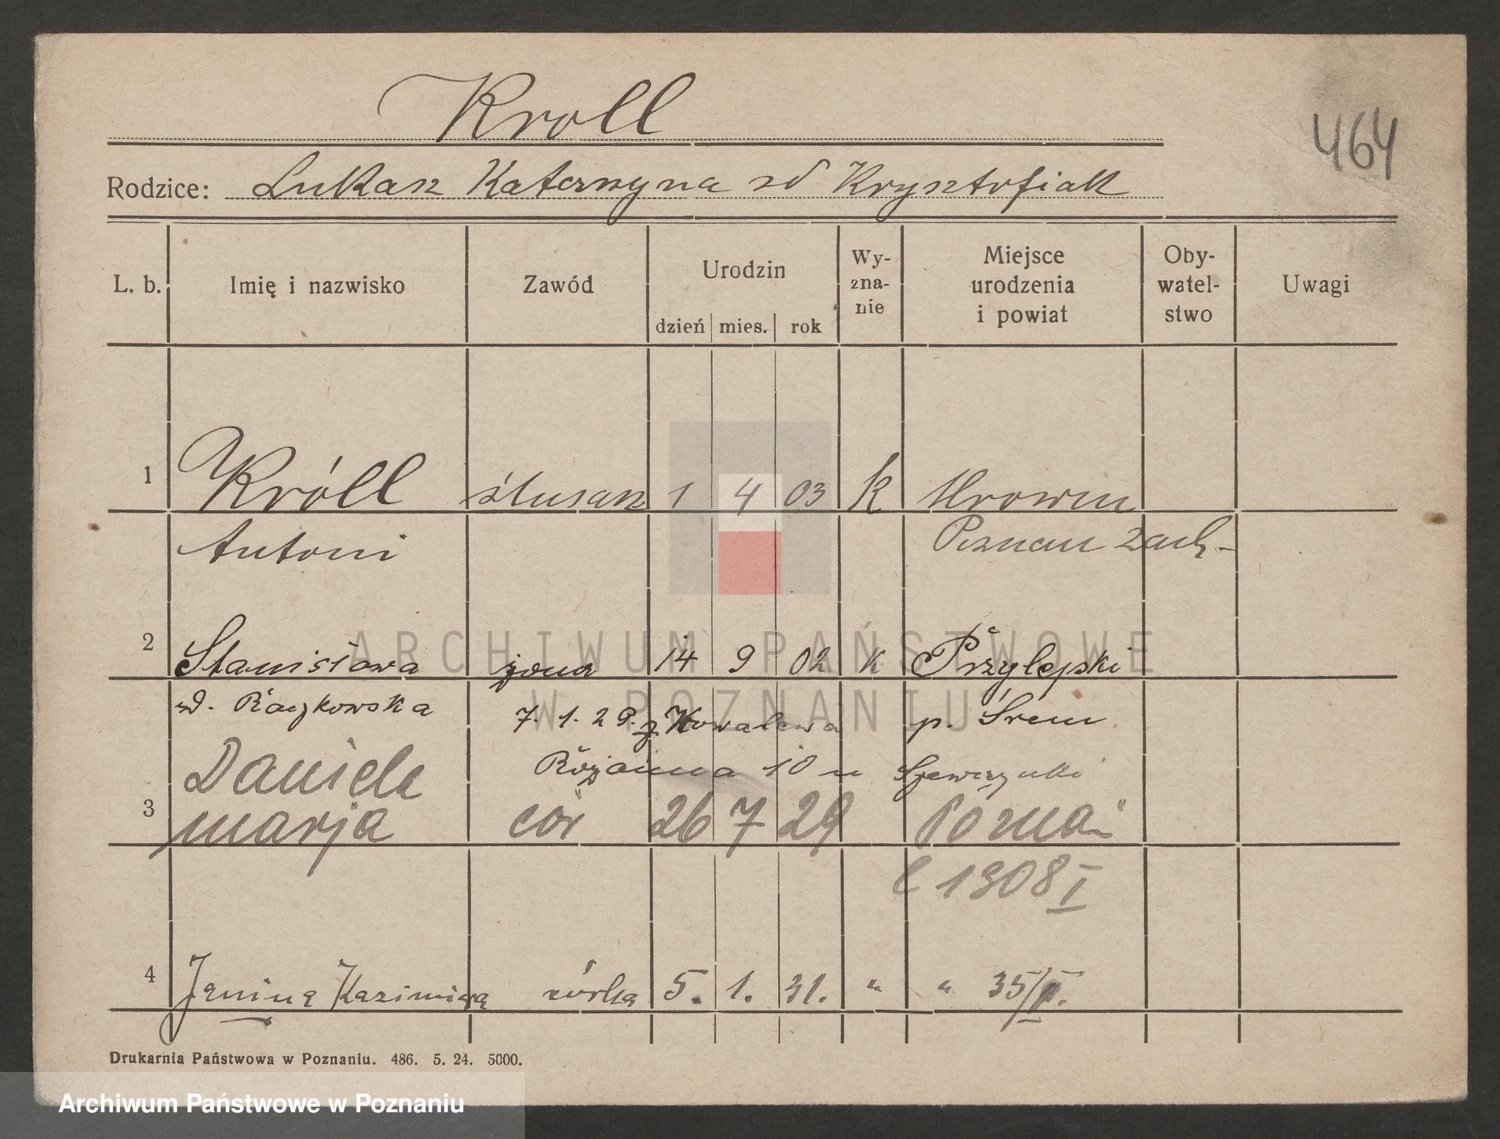 Kroll
464
Rodzice: Lukasz Katarzyna zd Krysztofiak
L. b. Imię i nazwisko Zawód Urodzin dzień mies. rok Wy-zna-nie Miejsce urodzenia i powiat Oby-watel-stwo Uwagi
1 Króll ślusarz 1 4 03 k Mrowin
Antoni Poznań Zach-
2 Stanisława żona 14 9 02 k Przylepski
zd. Raczkowska 7. 1. 29. z Kowalewa p. Śrem
Daniela Różanna 10 u
3 Marja cór 26 7 29 Poznań
1908 I
4 Janina Kazimiera córka 5. 1. 31. " " 35/I.
Drukarnia Państwowa w Poznaniu. 486. 5. 24. 5000.
ARCHIWUM PAŃSTWOWE
W POZNANIU
Archiwum Państwowe w Poznaniu